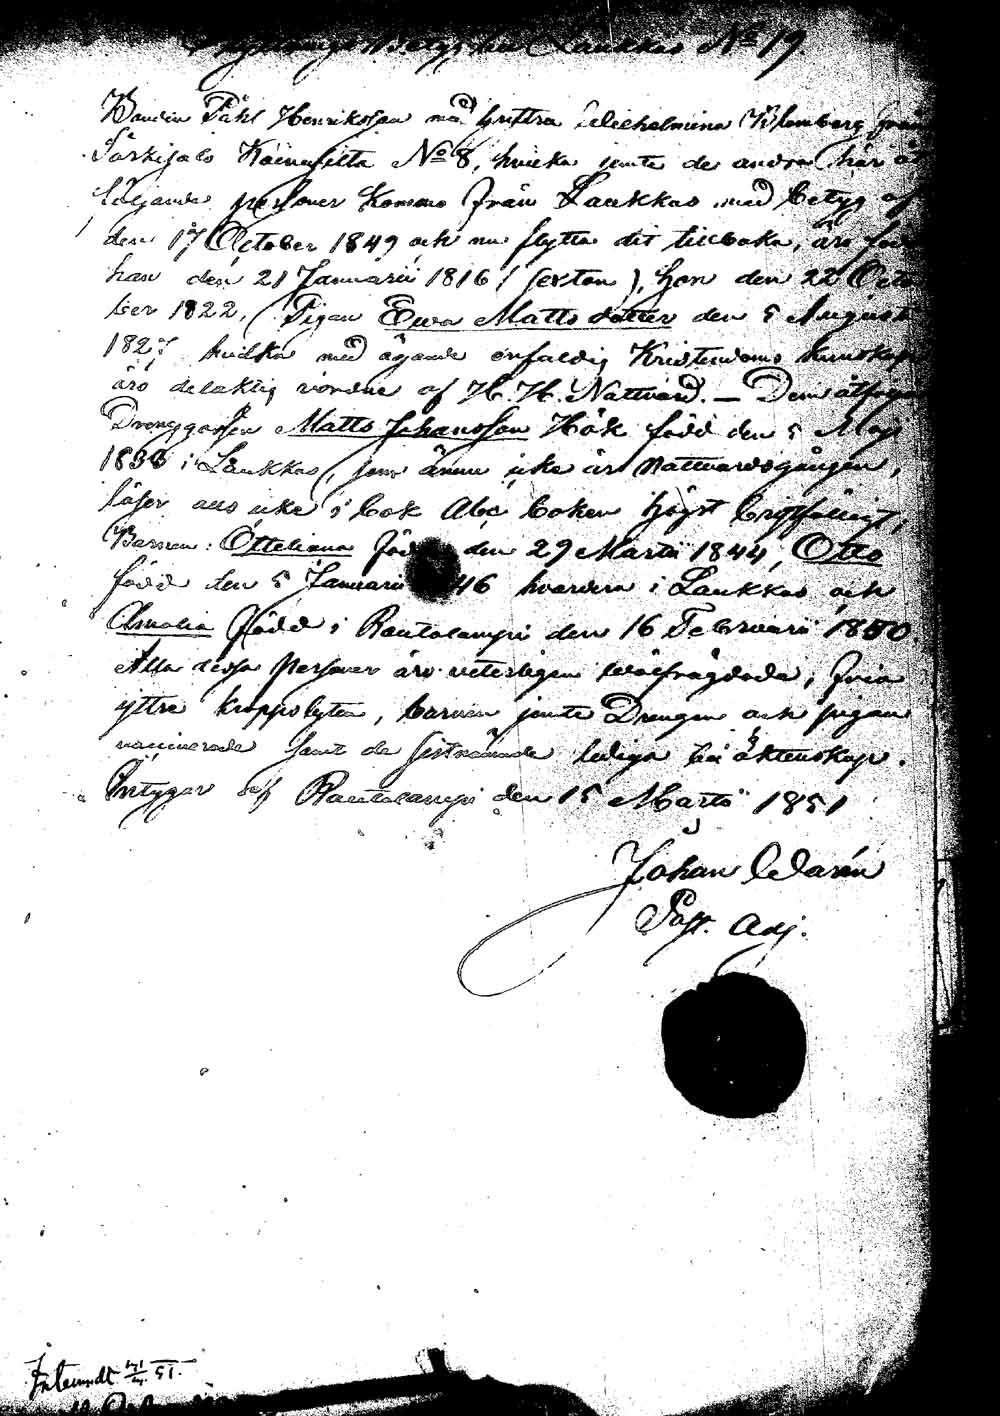 Flyttnings Betyg till Laukkas No 19.
Bonden Påhl Henriksson med hustru Wilhelmina Blomberg från
Särkisalo No 8, hvilka jemte de andra här
följande personer kommo från Laukkas med betyg af
den 17 October 1849 och nu flytta dit tillbaka, äro född
han den 21 Januarii 1816 (sexton), hon den 22 Octo
ber 1822, Pigan Ewa Matts dotter den 5 Augusti
182 hvilka med ägande enfaldig Kristendoms kunskap
äro delaktig vordne af H. H. Nattvard. — Dem åtföga
Drenggossen Matts Johansson Hök född den 5 Maj
1833 i Laukkas, som ännu icke är Nattvardsgången,
läser icke i bok Abc boken högst bristfälligt,
Barnen: Otteliana född den 29 Martii 1844, Otto
född den 5 Januarii 46 hvardera i Laukkas och
Amalia född i Rautalampi den 16 Februarii 1850.
Alla dessa personer äro veterligen wälfrägdade, fria
yttre kroppslyten, barnen jemte Drengen och pigan
vaccinerade samt de sistnämnde lediga till äktenskap.
Intygar Rautalampi den 15 Martii 1851
Johan Warén
Past. Adj.
Inlemndt 51.